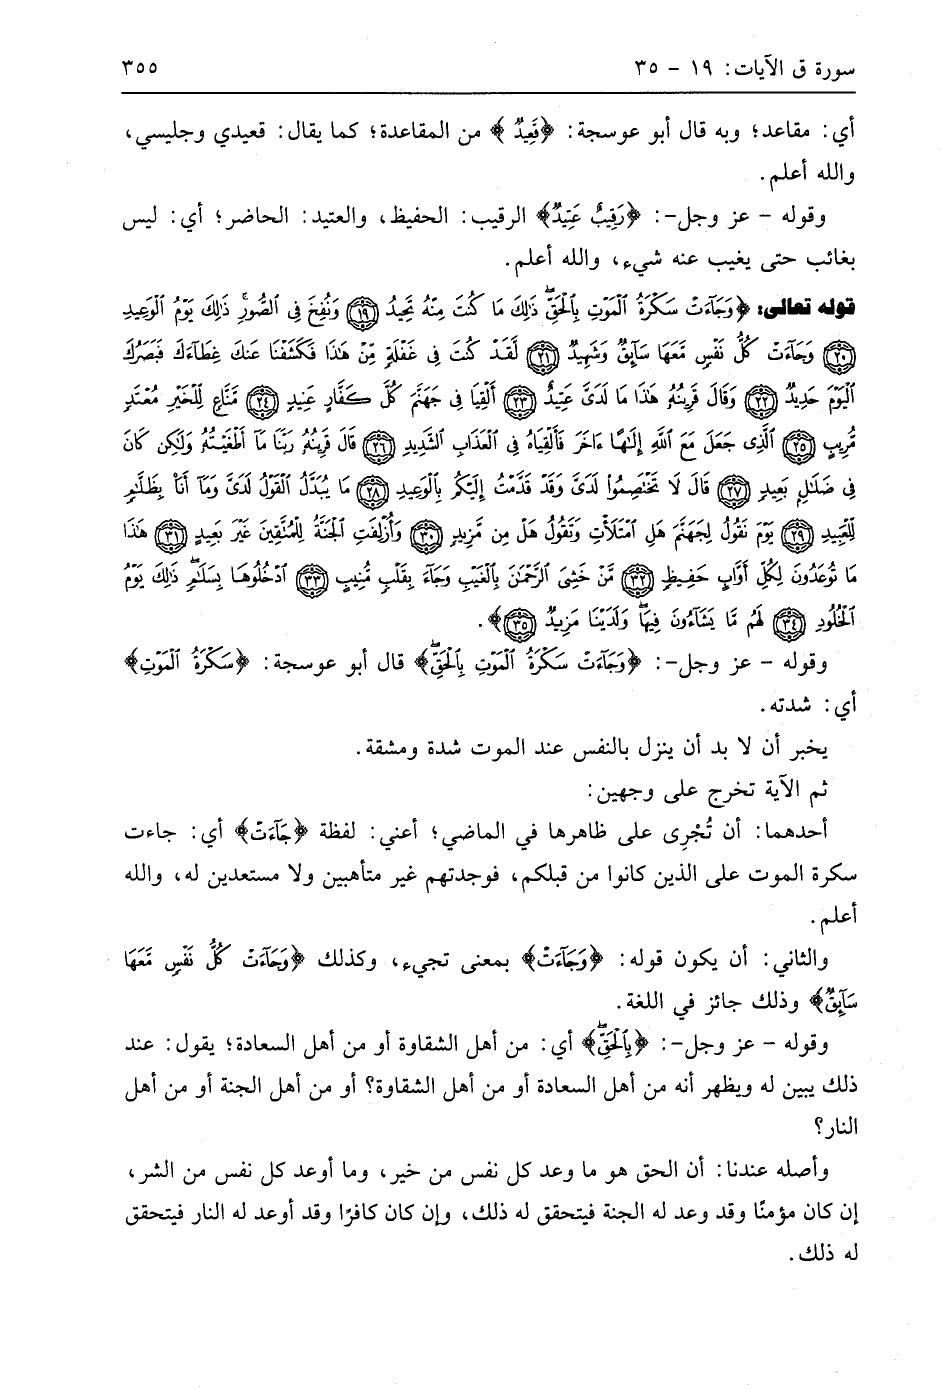 سورة ق الآيات: ١٩ - ٣٥ ٣٥٥
أي: مقاعد؛ وبه قال أبو عوسجة: ﴿قَعِيدٌ﴾ من المقاعدة؛ كما يقال: قعيدي وجليسي،
والله أعلم.
وقوله - عز وجل-: ﴿رَقِيبٌ عَتِيدٌ﴾ الرقيب: الحفيظ، والعتيد: الحاضر؛ أي: ليس
بغائب حتى يغيب عنه شيء، والله أعلم.
قوله تعالى: ﴿وَجَآءَتْ سَكْرَةُ ٱلْمَوْتِ بِٱلْحَقِّۖ ذَٰلِكَ مَا كُنتَ مِنْهُ تَحِيدُ ١٩ وَنُفِخَ فِى ٱلصُّورِۚ ذَٰلِكَ يَوْمُ ٱلْوَعِيدِ
٢٠ وَجَآءَتْ كُلُّ نَفْسٍ مَّعَهَا سَآئِقٌ وَشَهِيدٌ ٢١ لَّقَدْ كُنتَ فِى غَفْلَةٍ مِّنْ هَٰذَا فَكَشَفْنَا عَنكَ غِطَآءَكَ فَبَصَرُكَ
ٱلْيَوْمَ حَدِيدٌ ٢٢ وَقَالَ قَرِينُهُۥ هَٰذَا مَا لَدَىَّ عَتِيدٌ ٢٣ أَلْقِيَا فِى جَهَنَّمَ كُلَّ كَفَّارٍ عَنِيدٍ ٢٤ مَّنَّاعٍ لِّلْخَيْرِ مُعْتَدٍ
مُّرِيبٍ ٢٥ ٱلَّذِى جَعَلَ مَعَ ٱللَّهِ إِلَٰهًا ءَاخَرَ فَأَلْقِيَاهُ فِى ٱلْعَذَابِ ٱلشَّدِيدِ ٢٦ قَالَ قَرِينُهُۥ رَبَّنَا مَآ أَطْغَيْتُهُۥ وَلَٰكِن كَانَ
فِى ضَلَٰلٍ بَعِيدٍ ٢٧ قَالَ لَا تَخْتَصِمُوا۟ لَدَىَّ وَقَدْ قَدَّمْتُ إِلَيْكُم بِٱلْوَعِيدِ ٢٨ مَا يُبَدَّلُ ٱلْقَوْلُ لَدَىَّ وَمَآ أَنَا۠ بِظَلَّٰمٍ
لِّلْعَبِيدِ ٢٩ يَوْمَ نَقُولُ لِجَهَنَّمَ هَلِ ٱمْتَلَأْتِ وَتَقُولُ هَلْ مِن مَّزِيدٍ ٣٠ وَأُزْلِفَتِ ٱلْجَنَّةُ لِلْمُتَّقِينَ غَيْرَ بَعِيدٍ ٣١ هَٰذَا
مَا تُوعَدُونَ لِكُلِّ أَوَّابٍ حَفِيظٍ ٣٢ مَّنْ خَشِىَ ٱلرَّحْمَٰنَ بِٱلْغَيْبِ وَجَآءَ بِقَلْبٍ مُّنِيبٍ ٣٣ ٱدْخُلُوهَا بِسَلَٰمٍۖ ذَٰلِكَ يَوْمُ
ٱلْخُلُودِ ٣٤ لَهُم مَّا يَشَآءُونَ فِيهَاۖ وَلَدَيْنَا مَزِيدٌ ٣٥﴾.
وقوله - عز وجل-: ﴿وَجَآءَتْ سَكْرَةُ ٱلْمَوْتِ بِٱلْحَقِّۖ﴾ قال أبو عوسجة: ﴿سَكْرَةُ ٱلْمَوْتِ﴾
أي: شدته.
يخبر أن لا بد أن ينزل بالنفس عند الموت شدة ومشقة.
ثم الآية تخرج على وجهين:
أحدهما: أن تُجْرِى على ظاهرها في الماضي؛ أعني: لفظة ﴿جَآءَتْ﴾ أي: جاءت
سكرة الموت على الذين كانوا من قبلكم، فوجدتهم غير متأهبين ولا مستعدين له، والله
أعلم.
والثاني: أن يكون قوله: ﴿وَجَآءَتْ﴾ بمعنى تجيء، وكذلك ﴿وَجَآءَتْ كُلُّ نَفْسٍ مَّعَهَا
سَآئِقٌ﴾ وذلك جائز في اللغة.
وقوله - عز وجل-: ﴿بِٱلْحَقِّۖ﴾ أي: من أهل الشقاوة أو من أهل السعادة؛ يقول: عند
ذلك يبين له ويظهر أنه من أهل السعادة أو من أهل الشقاوة؟ أو من أهل الجنة أو من أهل
النار؟
وأصله عندنا: أن الحق هو ما وعد كل نفس من خير، وما أوعد كل نفس من الشر،
إن كان مؤمنًا وقد وعد له الجنة فيتحقق له ذلك، وإن كان كافرًا وقد أوعد له النار فيتحقق
له ذلك.